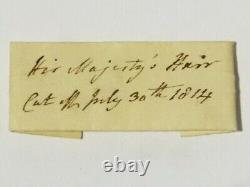 His Majesty's Hair
Cut off July 30th 1814